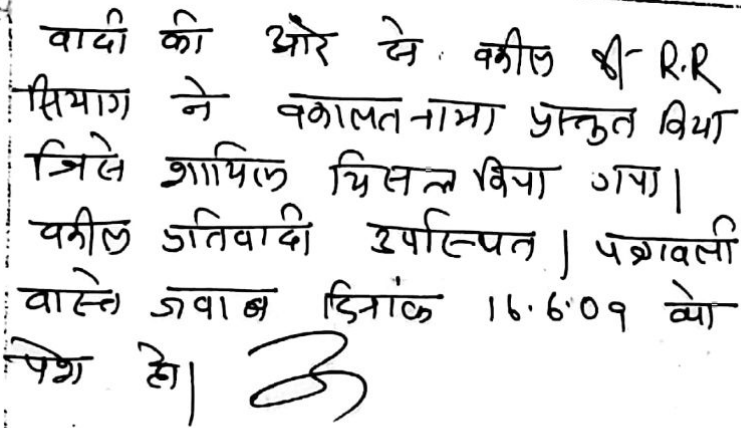 वादी की ओर से वकील श्री R.R
सियाग ने वकालतनामा प्रस्तुत किया
जिसे शामिल मिसल किया गया।
वकील प्रतिवादी उपस्थित। पत्रावली
वास्ते जवाब दिनांक 16.6.09 को
पेश हो।